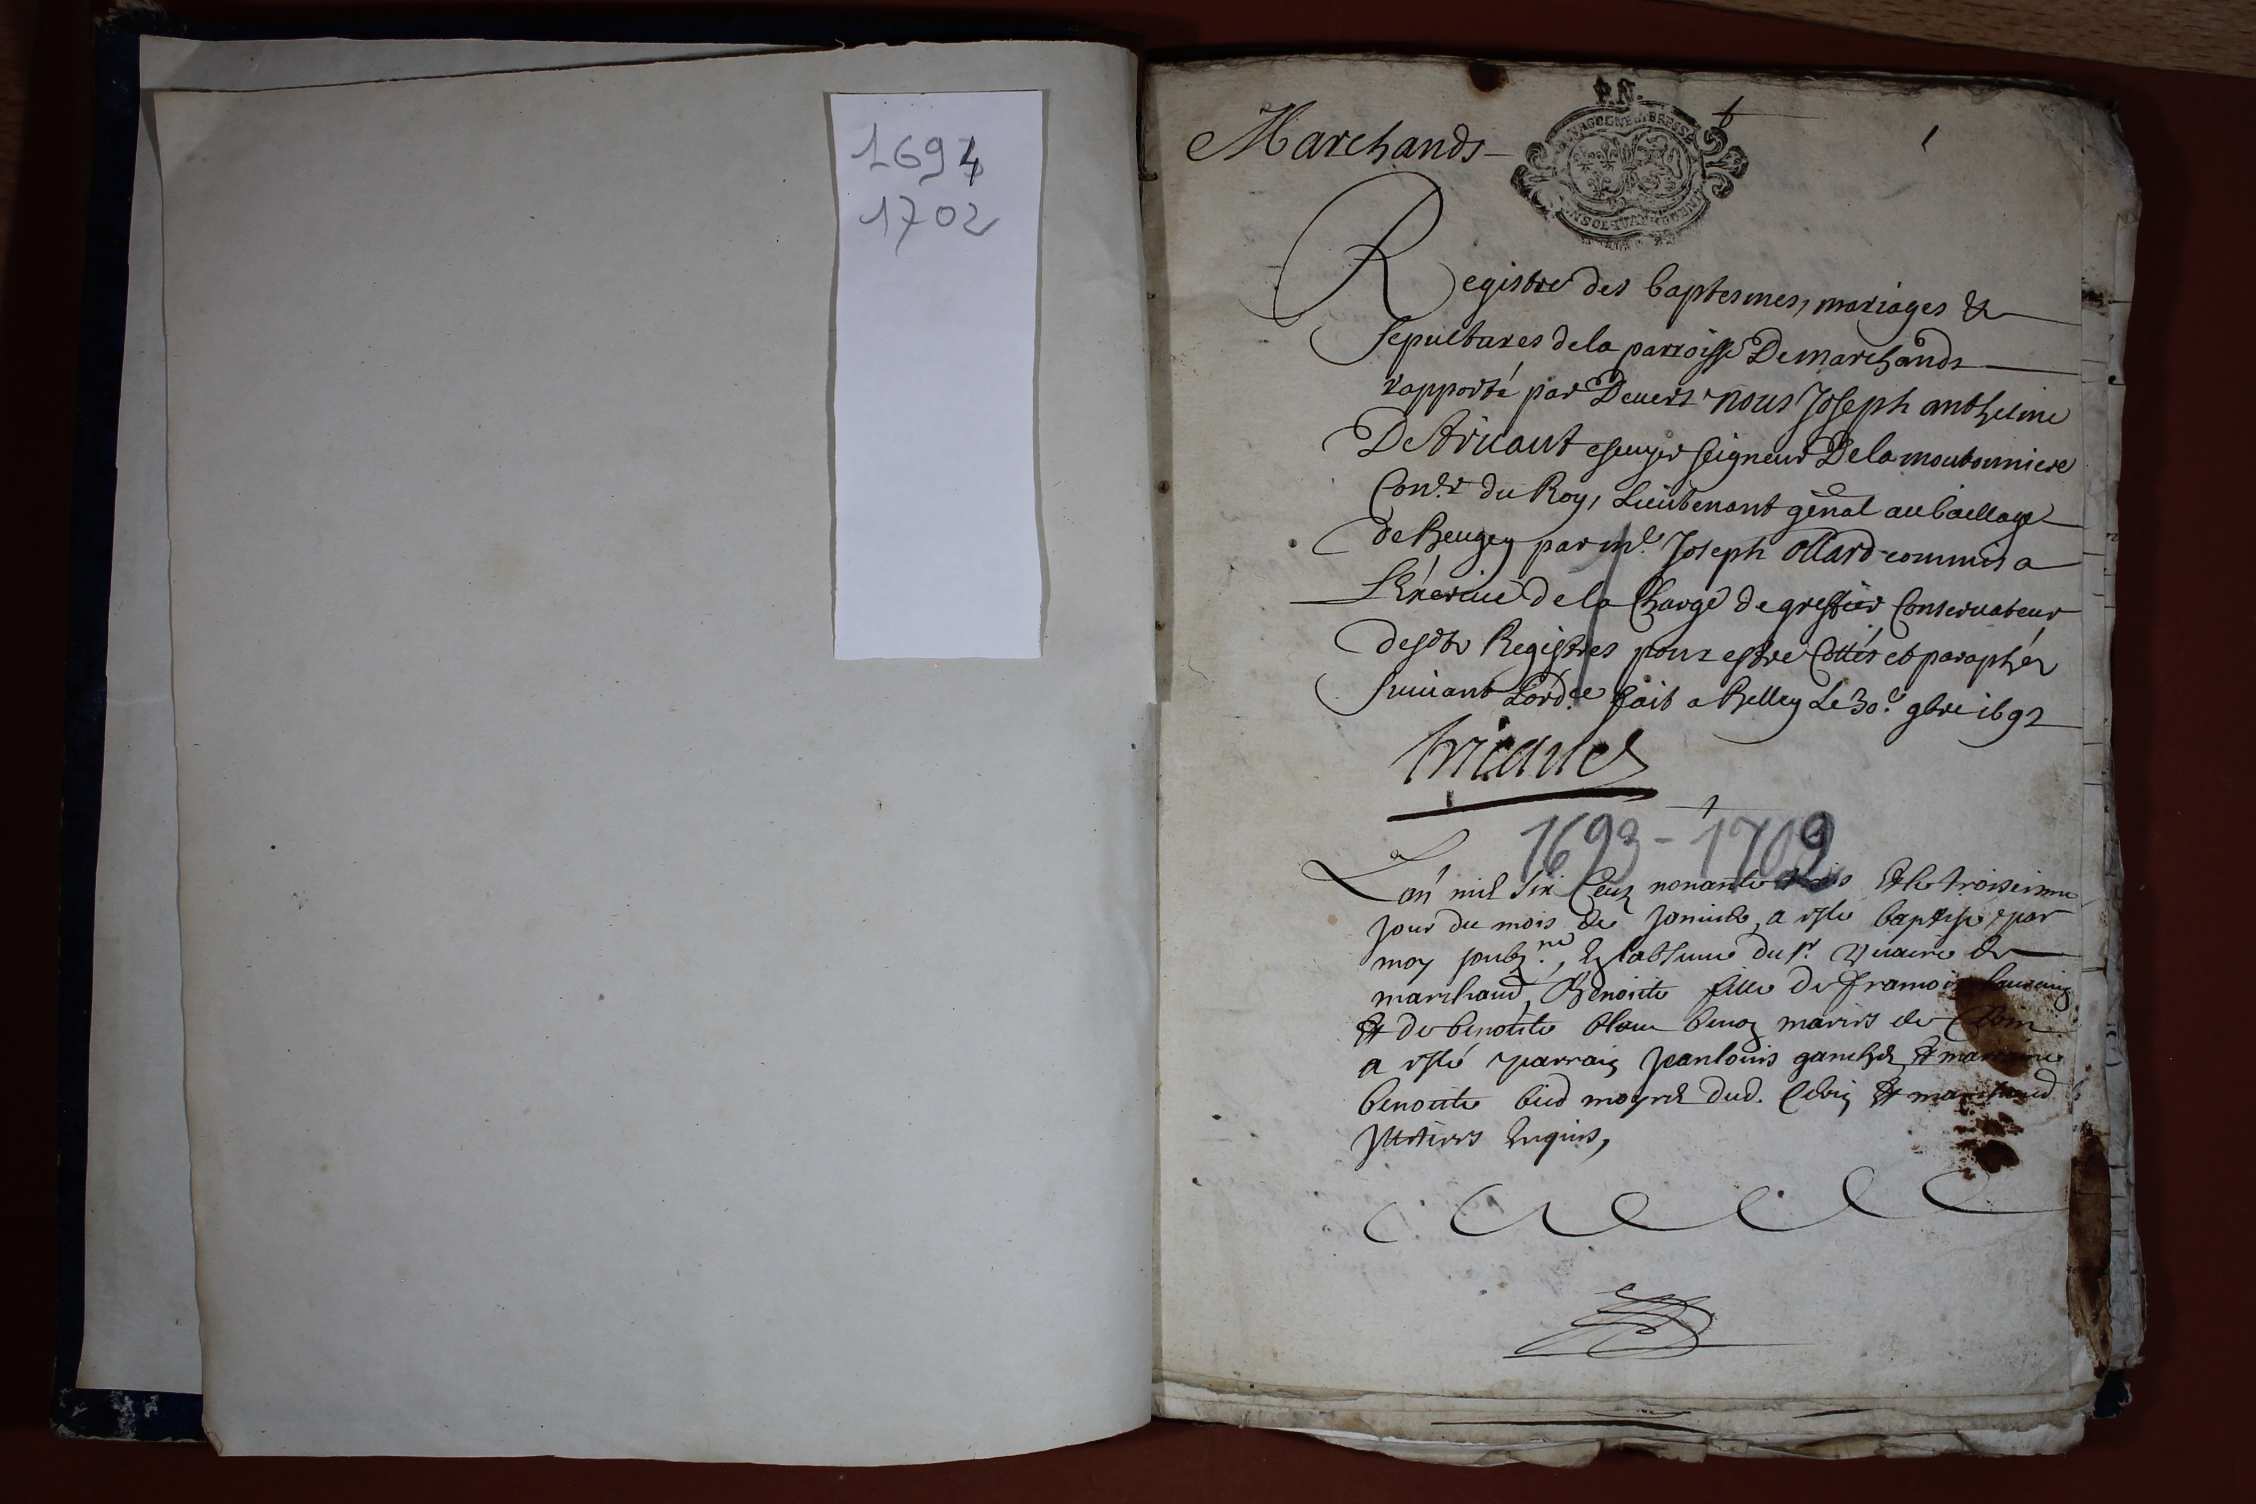 1694
1702
Marchands
1
P.N.
Registre des baptesmes, mariages &
sepultures de la parroisse De marchands
rapporté par Devers nous Joseph anthelme
De Tricaut escuyer seigneur De la moutonniere
Con.er du Roy, Lieutenant gênal au bailliage
de Beugey par m.e Joseph Ollard commis a
L'Exercice de la Charge de greffier Conservateur
desdts Registres pour estre Cottés et paraphés
suivant L'ord.ce fait a Belley Le 30.e 9bre 1692
Tricaut
1693 - 1702
L'an mil six Cens nonante trois & le troiseime
jour du mois de Janvier, a esté baptisé par
moy soubz.né, En l'absence du s.r vicaire de
marchand, Benoite fille de francois
& de benoite mariés de
a esté parrain Jean louis & marraine
benoite dud. & marchand
Illitérés Enquis,